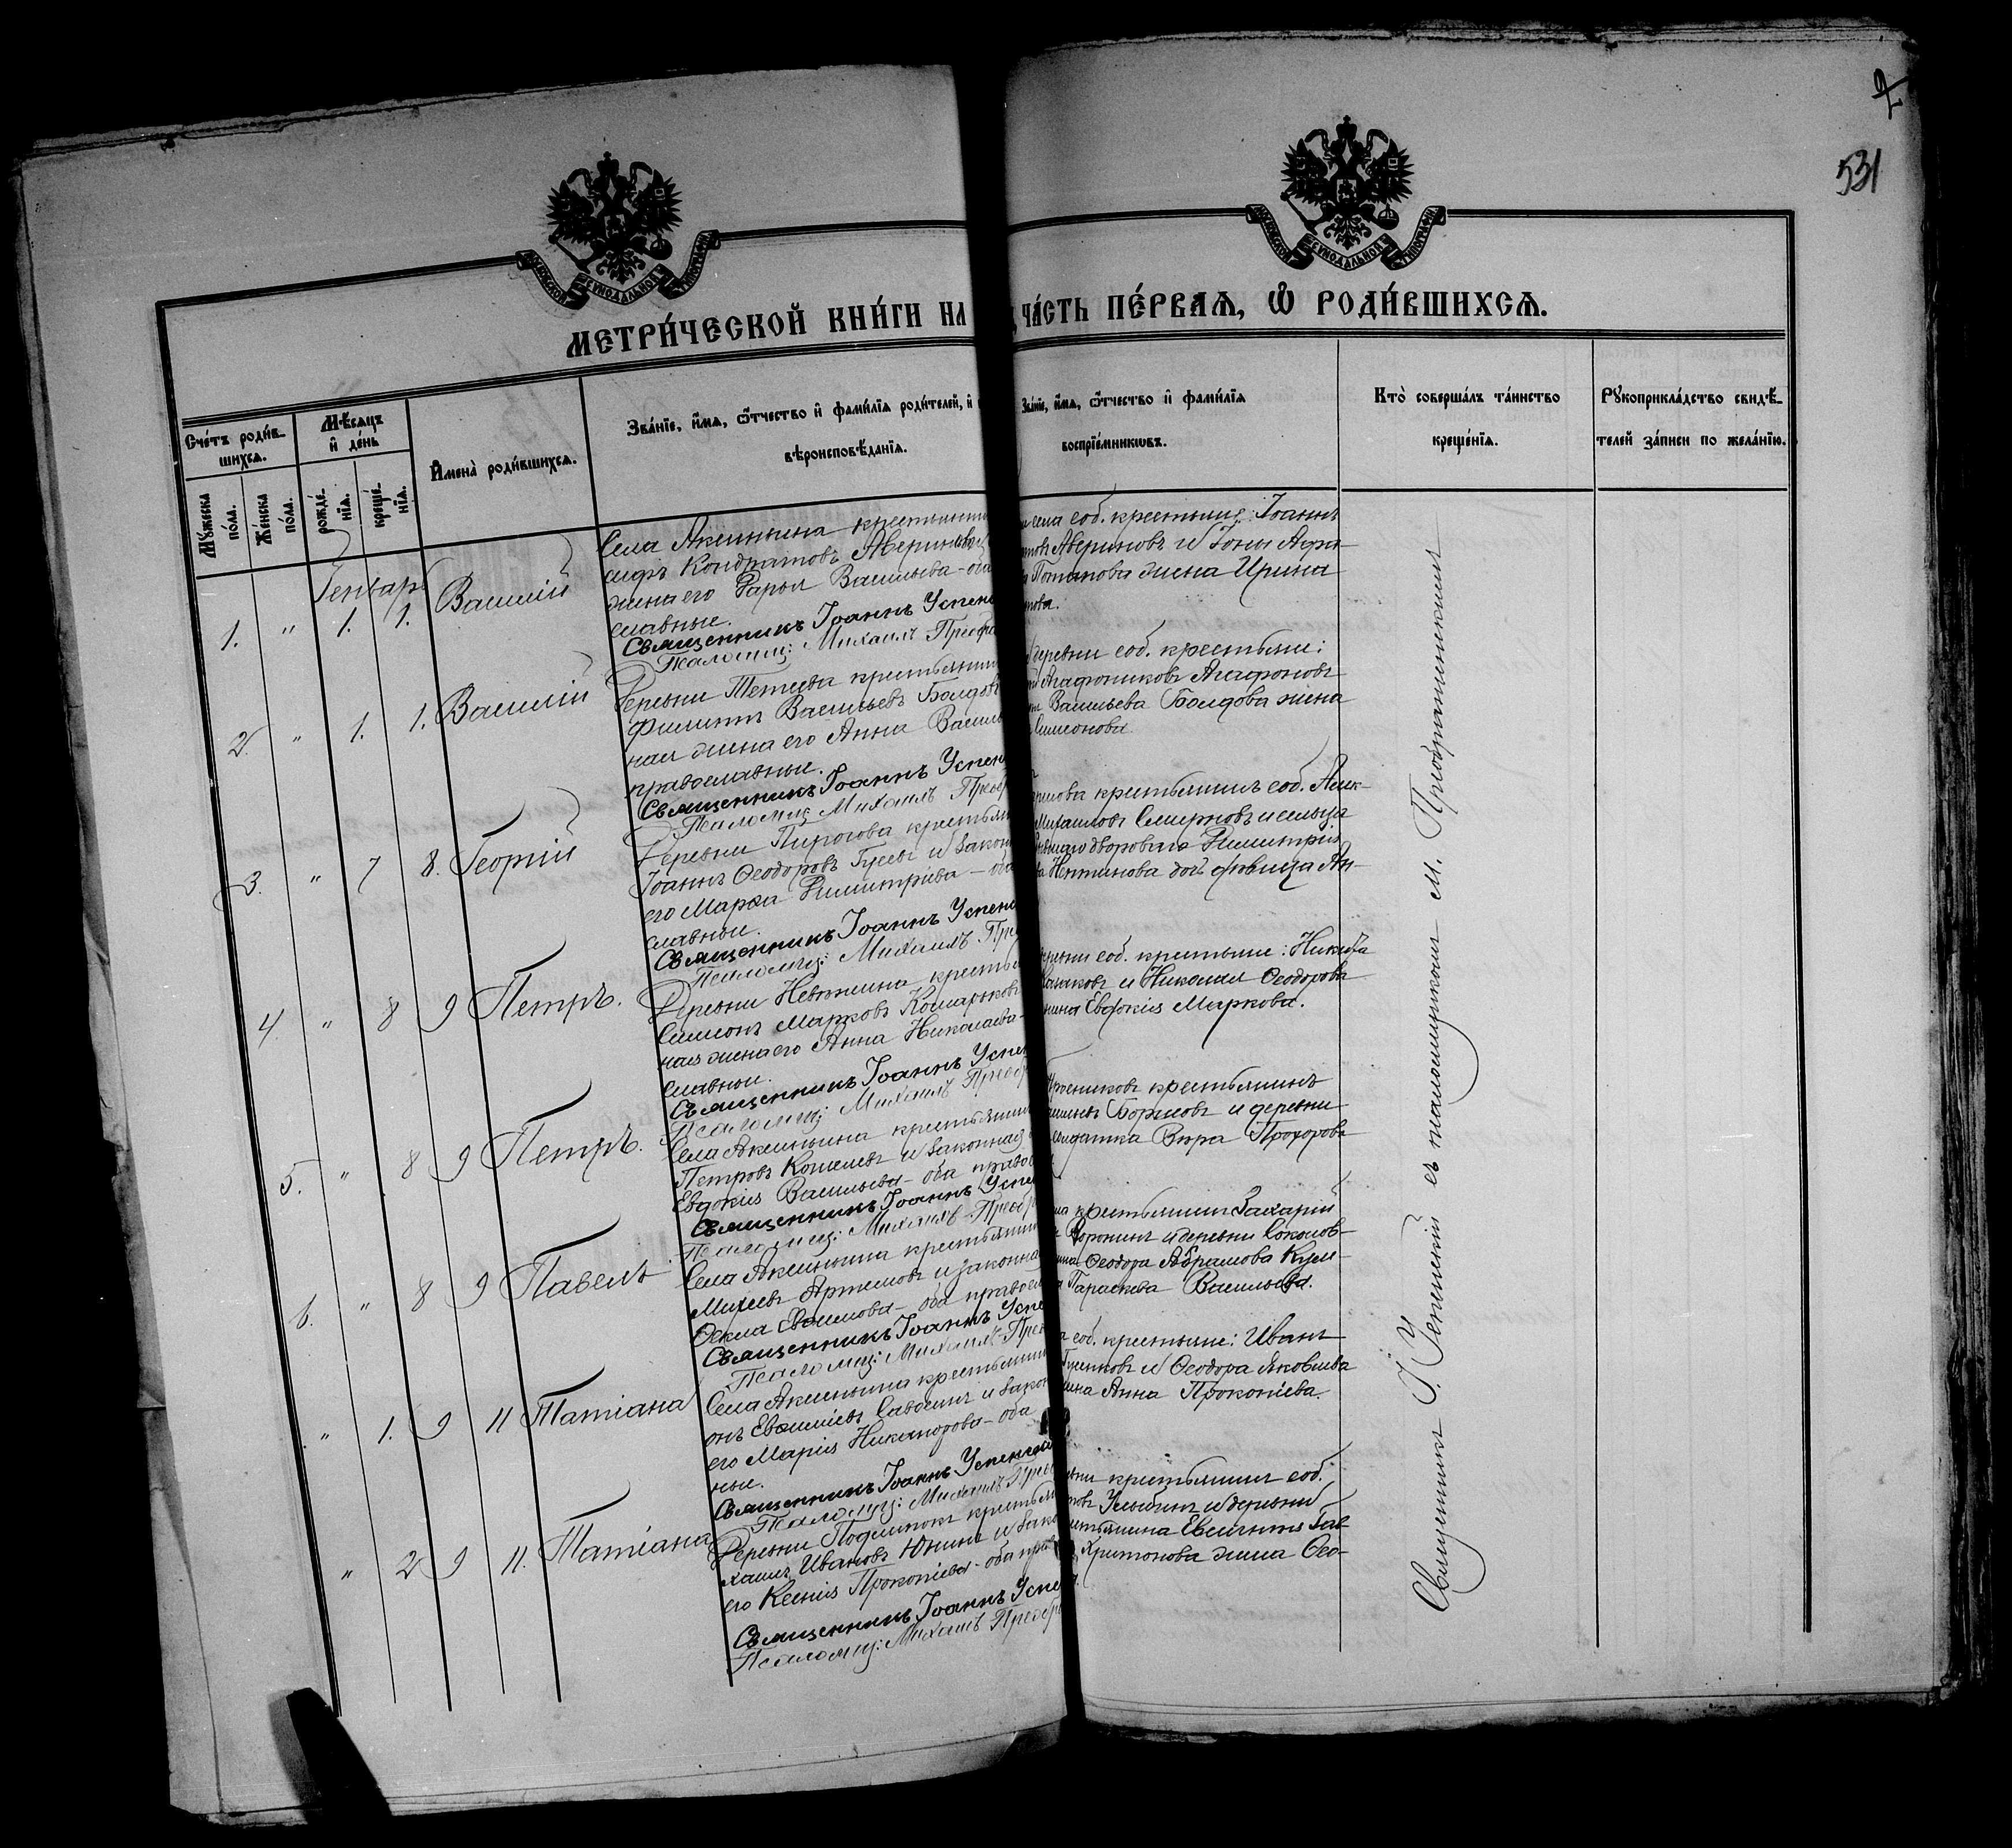 531
МОСКОВСКОЙ СУНОДАЛЬНОЙ ТИПОГРАФІИ
МОСКОВСКОЙ СУНОДАЛЬНОЙ ТИПОГРАФІИ
МЕТРИ́ЧЕСКОЙ КНИ́ГИ НА
ЧА́СТЬ ПЕ́РВАѦ, Ѡ҆ РОДИ́ВШИХСѦ.
Сче́тъ роди́в-
шихсѧ.
Мꙋ́жеска по́ла.
Же́нска по́ла.
Мѣ́сѧцъ и҆ де́нь
рожде́-нїѧ.
креще́-нїѧ.
И҆мена̀ роди́вшихсѧ.
Зва́нїе, и҆́мѧ, ѻ҆́тчество и҆ фами́лїѧ роди́телей, и҆
вѣроисповѣ́данїѧ.
Зва́нїе, и҆́мѧ, ѻ҆́тчество и҆ фами́лїѧ
воспрїе́мникѡвъ.
Кто̀ соверша́лъ та́инство
креще́нїѧ.
Рꙋкоприкла́дство свидѣ́-
телей за́писи по жела́нїю.
Генварь
1. " 1. 1. Василій
Села Аксиньина крестьянин
сифъ Кондратовъ Авериновъ
жена его Дарья Васильева - оба
славные.
Священникъ Іоаннъ Успен
Псаломщ: Михаилъ Преобра
села соб. крестьяне: Іоаннъ
Авериновъ и Іоны
Потапова жена Ирина
2. " 1. 1. Василій
Деревни Тетеева крестьянин
Филиппъ Васильевъ Болдов
ная жена его Анна Василь
православные.
Священникъ Іоаннъ Успен
Псаломщ Михаилъ Преобр
деревни соб. крестьяне:
Агафониковъ Агафоновъ
Васильева Болдова жена
Симеонова
3. " 7 8. Георгій
Деревни Пирогова крестьян
Іоаннъ Ѳеодоровъ Гусевъ и закон
его Марѳа Димитріева - оба
славные.
Священникъ Іоаннъ Успен
Псаломщ: Михаилъ Пре
крестьянинъ соб. Алек-
Михаиловъ Смирновъ и сельца
двороваго Димитрія
дочь дѣвица Ан-
4. " 8 9 Петръ.
Деревни Невѣжина крестья
Симеонъ Марковъ Комарьковъ
ная жена его Анна Николаева -
славные.
Священникъ Іоаннъ Успен
Псаломщ: Михаилъ Преобр
соб. крестьяне: Никита
и Николая Ѳеодорова
жена Евдокія Маркова.
5. " 8 9 Петръ.
Села Аксиньина крестьянин
Петровъ Кошелевъ и законная
Евдокія Васильева - оба правос
Священникъ Іоаннъ Успе
Псаломщ: Михаилъ Преобр
крестьянинъ
Борисовъ и деревни
солдатка Вѣра Прохорова
6. " 8 9 Павелъ
Села Аксиньина крестьянин
Михеевъ Артемовъ и законна
Ѳекла Евѳимова - оба правосл
Священникъ Іоаннъ Успе
Псаломщ: Михаилъ Пре
крестьянинъ Захарій
Воронинъ и деревни Соколов-
Ѳеодора Абрамова Кузн-
Параскева Васильева.
" 1. 9 11 Татіана
Села Аксиньина крестьянин
онъ Евѳиміевъ Савосинъ и закон
его Марія Никанорова - оба
ные.
Священникъ Іоаннъ Успенскій
Псаломщ: Михаилъ Прео
соб. крестьяне: Иванъ
и Ѳеодора Яковлева
жена Анна Прокопіева.
" 2 9 11. Татіана
Деревни Подлипокъ крестьян
хаилъ Ивановъ Юнинъ и зако
его Ксенія Прокопіева - оба прав
Священникъ Іоаннъ Успе
Псаломщ: Михаилъ Преобр
крестьянинъ соб.
и деревни
Евсигнія Гав-
Харитонова жена Ѳео-
Священникъ І. Успенскій съ псаломщикомъ М. Преображенскимъ